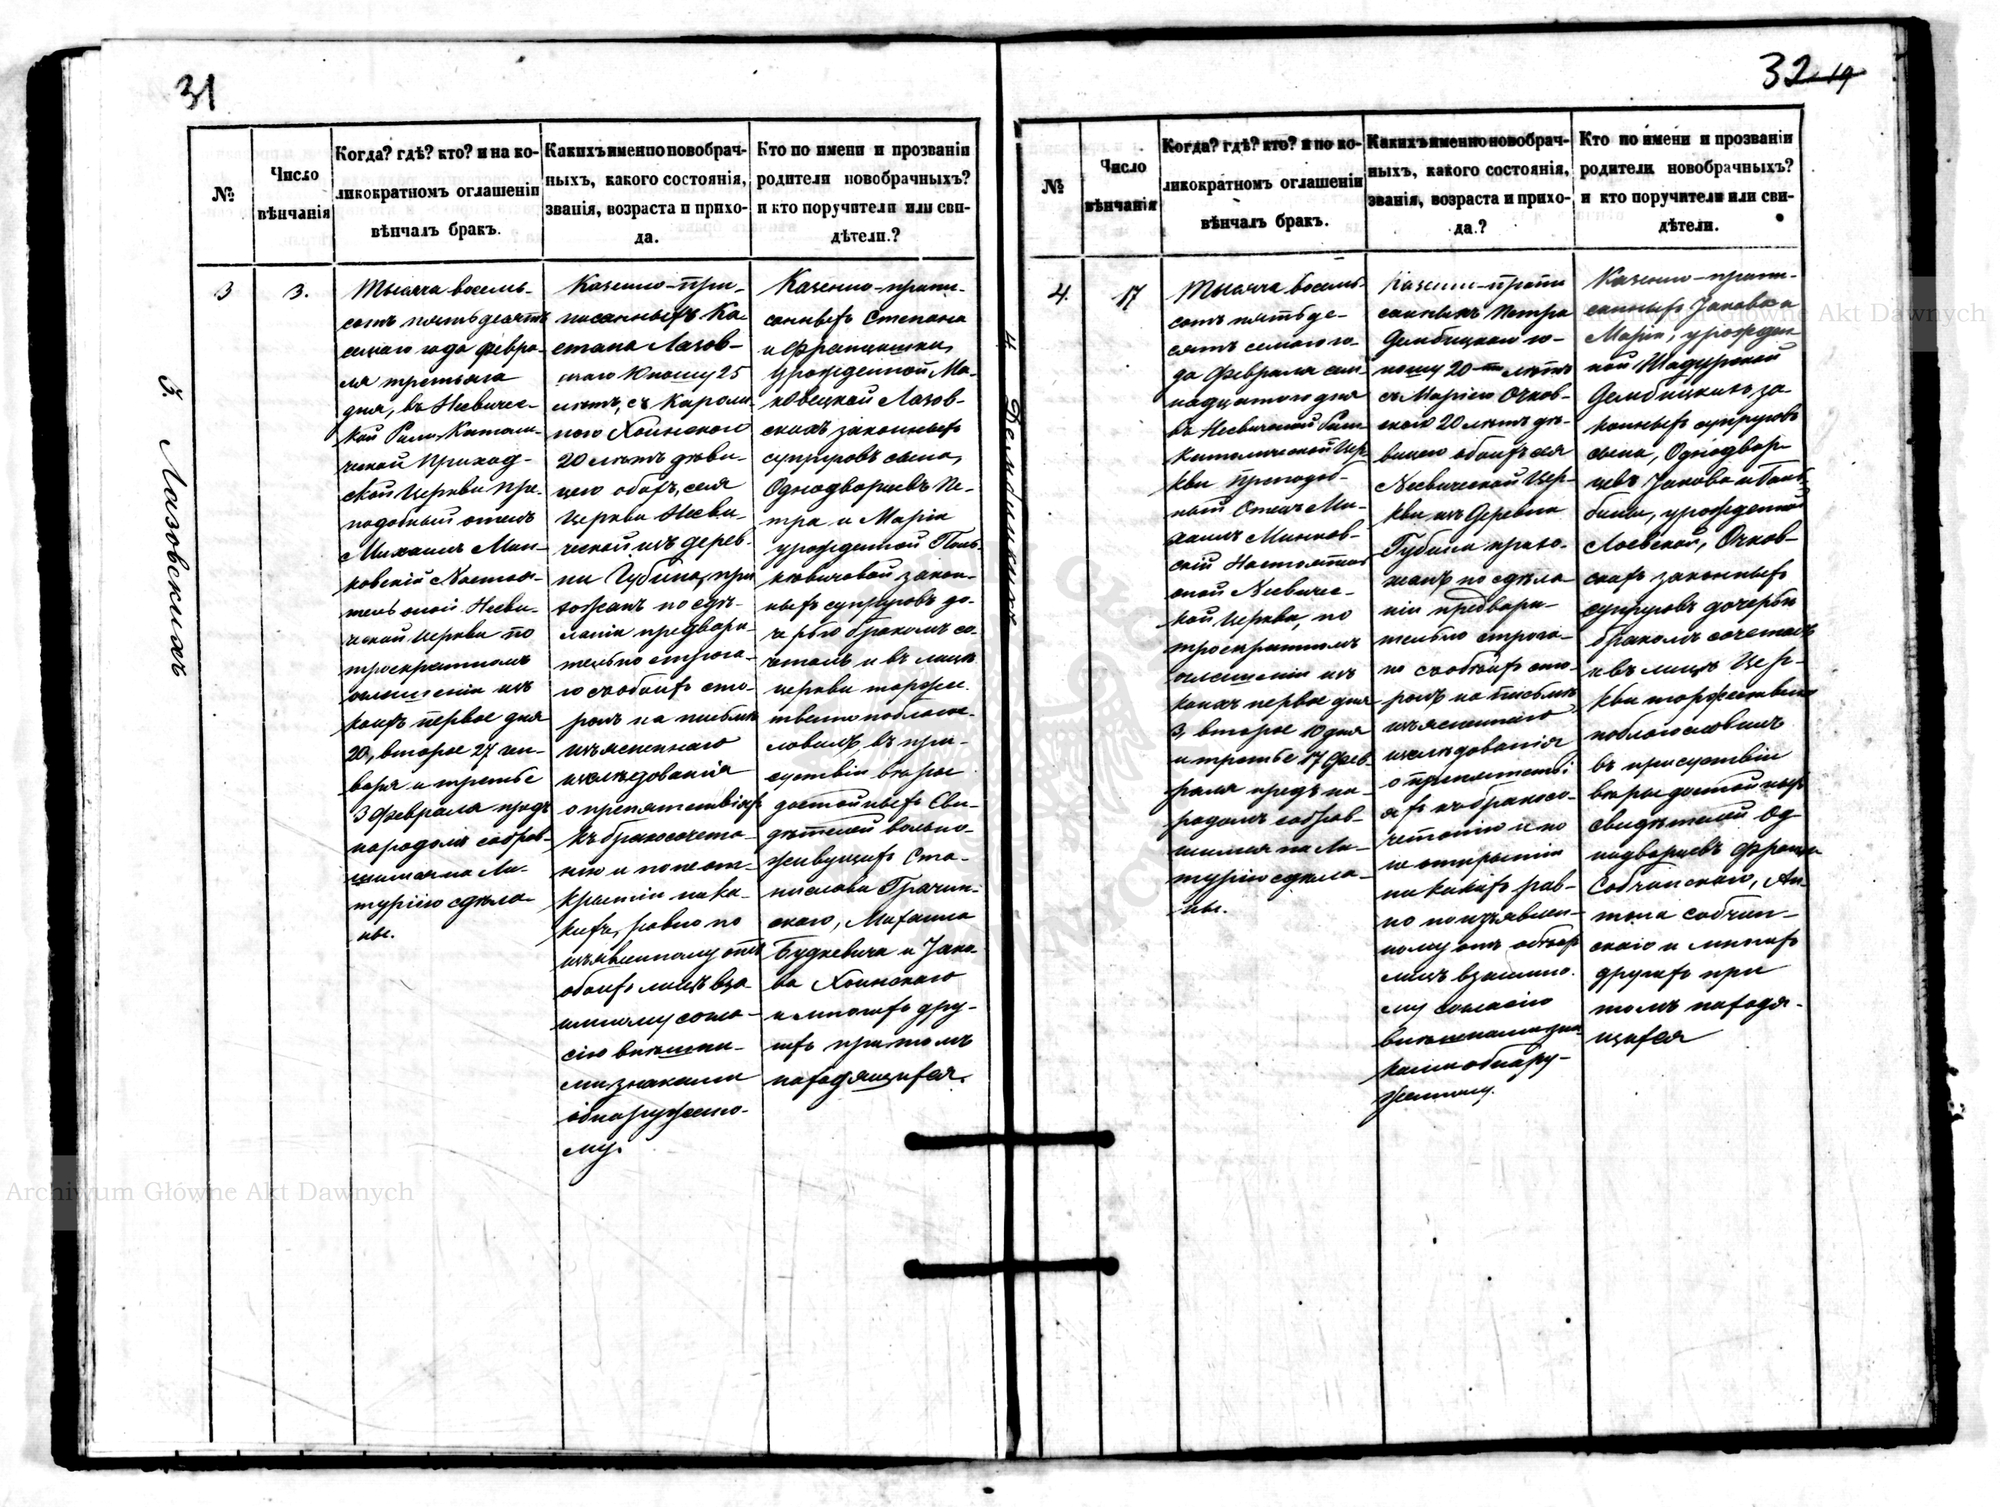 31
№
Число
вѣнчанія
Когда? гдѣ? кто? и на ко-
ликократномъ оглашеніи
вѣнчалъ бракъ.
Какихъ именно новобрач-
ныхъ, какого состоянія,
званія, возраста и прихо-
да.
Кто по имени и прозваніи
родители новобрачныхъ?
и кто поручители или сви-
дѣтели.?
3. Лазовскихъ
3
3.
Тысяча восемь-
сотъ пятьдесятъ
седмаго года февра-
ля третьяго
дня, въ Несвичес-
кой Римо-Католи-
ческой приход-
ской Церкви пре-
подобный отецъ
Михаилъ Мин-
ковскій Настоя-
тель оной Несви-
ческой Церкви по
троекратномъ
оглашеніи изъ
коихъ первое дня
20, второе 27 ян-
варя и третье
3 февраля предъ
народомъ собрав-
шимся на Ли-
тургію сдѣла-
ны.
Казенно-при-
писанныхъ Ка-
етана Лазов-
скаго Юношу 25
лѣтъ, съ Кароли-
ною Хоинскою
20 лѣтъ дѣви-
цею обоихъ, сея
Церкви Несви-
ческой изъ дерев-
ни Губина, при
хожанъ по сдѣ-
ланіи предвари-
тельно строга-
го съ обоихъ сто-
ронъ на письмѣ
изъясненнаго
изслѣдованія
о препятствіяхъ
къ бракосочета-
нію и по не от-
крытіи ника-
кихъ, равно по
изъявленному отъ
обоихъ лицъ вза-
имному согла-
сію внѣшни-
ми знаками
обнаруженно-
му.
Казенно-припи-
санныхъ Степана
и Францишки,
урожденной Ма-
ковецкой Лазов-
скихъ законныхъ
супруговъ сына,
Однодворцевъ Пе-
тра и Маріи
урожденной
закон-
ныхъ супруговъ до-
черью бракомъ со-
четалъ и въ лицѣ
церкви торже-
ственно поблаго-
словилъ, въ при-
сутствіи вѣры
достойныхъ Сви-
дѣтелей вольно-
живущихъ Ста-
нислава Грачин-
скаго, Михаила
Будкевича и Яко-
ва Хоинскаго
и многихъ дру-
гихъ при томъ
находящихся.
32 19
№
Число
вѣнчанія
Когда? гдѣ? кто? и по ко-
ликократномъ оглашеніи
вѣнчалъ бракъ.
Какихъ именно новобрач-
ныхъ, какого состоянія,
званія, возраста и прихо-
да.?
Кто по имени и прозваніи
родители новобрачныхъ?
и кто поручители или сви-
дѣтели.
4. Дембицкихъ
4.
17
Тысяча восемь-
сотъ пятьде-
сятъ седмого го-
да февраля сем-
надцатого дня
въ Несвической Римо
Католической Цер-
кви Преподоб-
ный Отецъ Ми-
хаилъ Минков-
скій Настоятель
оной Несвичес-
кой Церкви, по
троекратномъ
оглашеніи изъ
коихъ первое дня
3, второе 10 дня
и третье 17 фев-
раля предъ на-
родомъ собрав-
шимся на Ли-
тургію сдѣла-
ны.
Казенно-припи
санныхъ Петра
Дембицкаго ю-
ношу 20 лѣтъ
съ Маріею Очков-
скою 20 лѣтъ дѣ-
вицею обоихъ сея
Несвической Цер-
кви, изъ Деревни
Губина прихо-
жанъ по сдѣла
ніи предвари-
тельно строга-
го съ обоихъ сто-
ронъ на письмѣ
изъясненнаго
изслѣдованія
о препятстві
яхъ къ бракосо-
четанію и по
не открытіи
никакихъ рав-
но по изъявлен-
ному отъ обоихъ
лицъ взаимно-
му согласію
внѣшними зна-
ками обнару-
женному.
Казенно-припи-
санныхъ Якова и
Маріи, урожден
ной Шадурской
Дембицкихъ, за-
конныхъ супруговъ
сына, Однодвор-
цевъ Якова и
урожденной
Лоевской, Очков-
скихъ законныхъ
супруговъ дочерью
бракомъ сочеталъ
и въ лицѣ Цер-
кви торжественно
поблагословилъ
въ присутствіи
вѣры достойныхъ
свидѣтелей Од
нодворцевъ Франца
Собчинскаго, Ан-
тона Собчин-
скаго и многихъ
другихъ при
томъ находя-
щихся
Archiwum Główne Akt Dawnych
Archiwum Główne Akt Dawnych